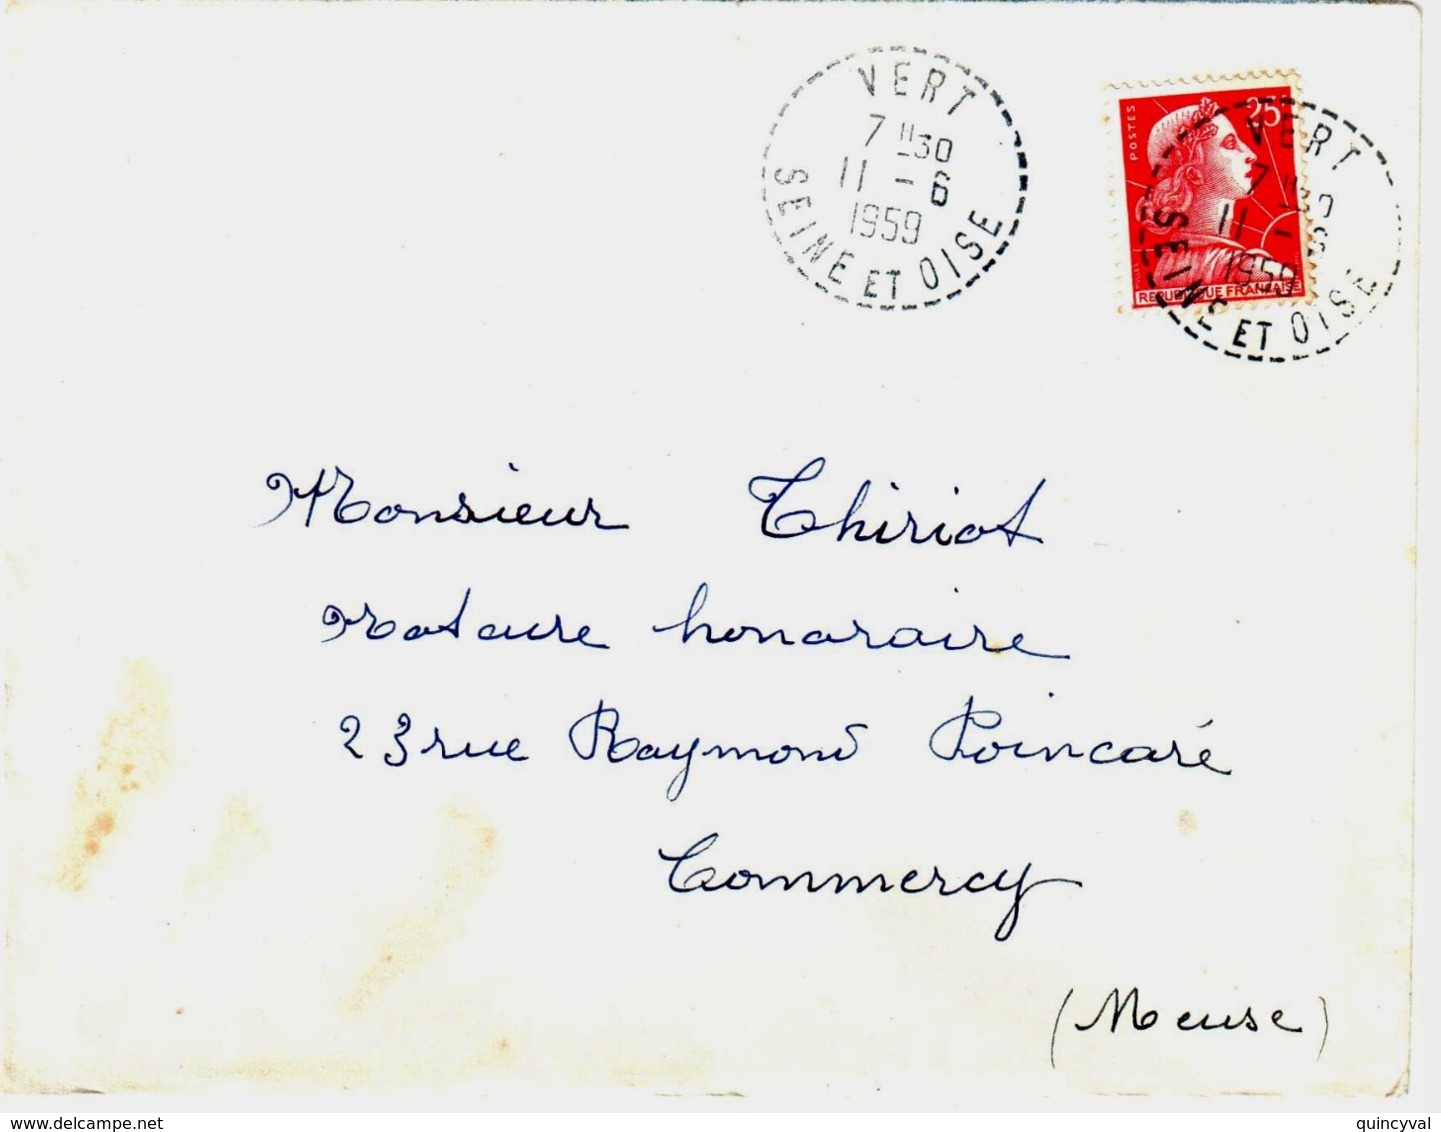 VERT
7 H30
11 - 6
1959
SEINE ET OISE
POSTES
25F
REPUBLIQUE FRANÇAISE
VERT
7 H30
11 - 6
1959
SEINE ET OISE
Monsieur Thiriot
Notaire honoraire
23 rue Raymond Poincaré
Commercy
(Meuse)
www.delcampe.net
quincyval